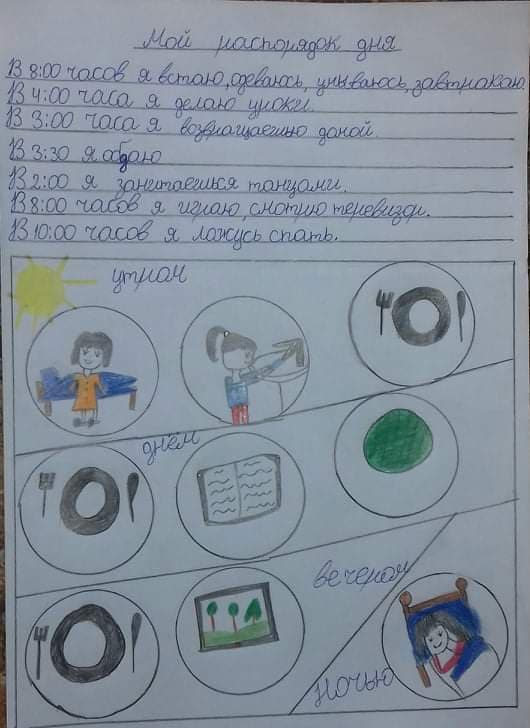 Мой распорядок дня
В 8:00 часов я встаю, одеваюсь, умываюсь, завтракаю.
В 4:00 часа я делаю уроки.
В 3:00 часа я возвращаешю домой.
В 3:30 я обдаю
В 2:00 я занитаешься танцами.
В 8:00 часов я играю, смотрю теревизор.
В 10:00 часов я ложусь спать.
утром
днём
вечером
ночью